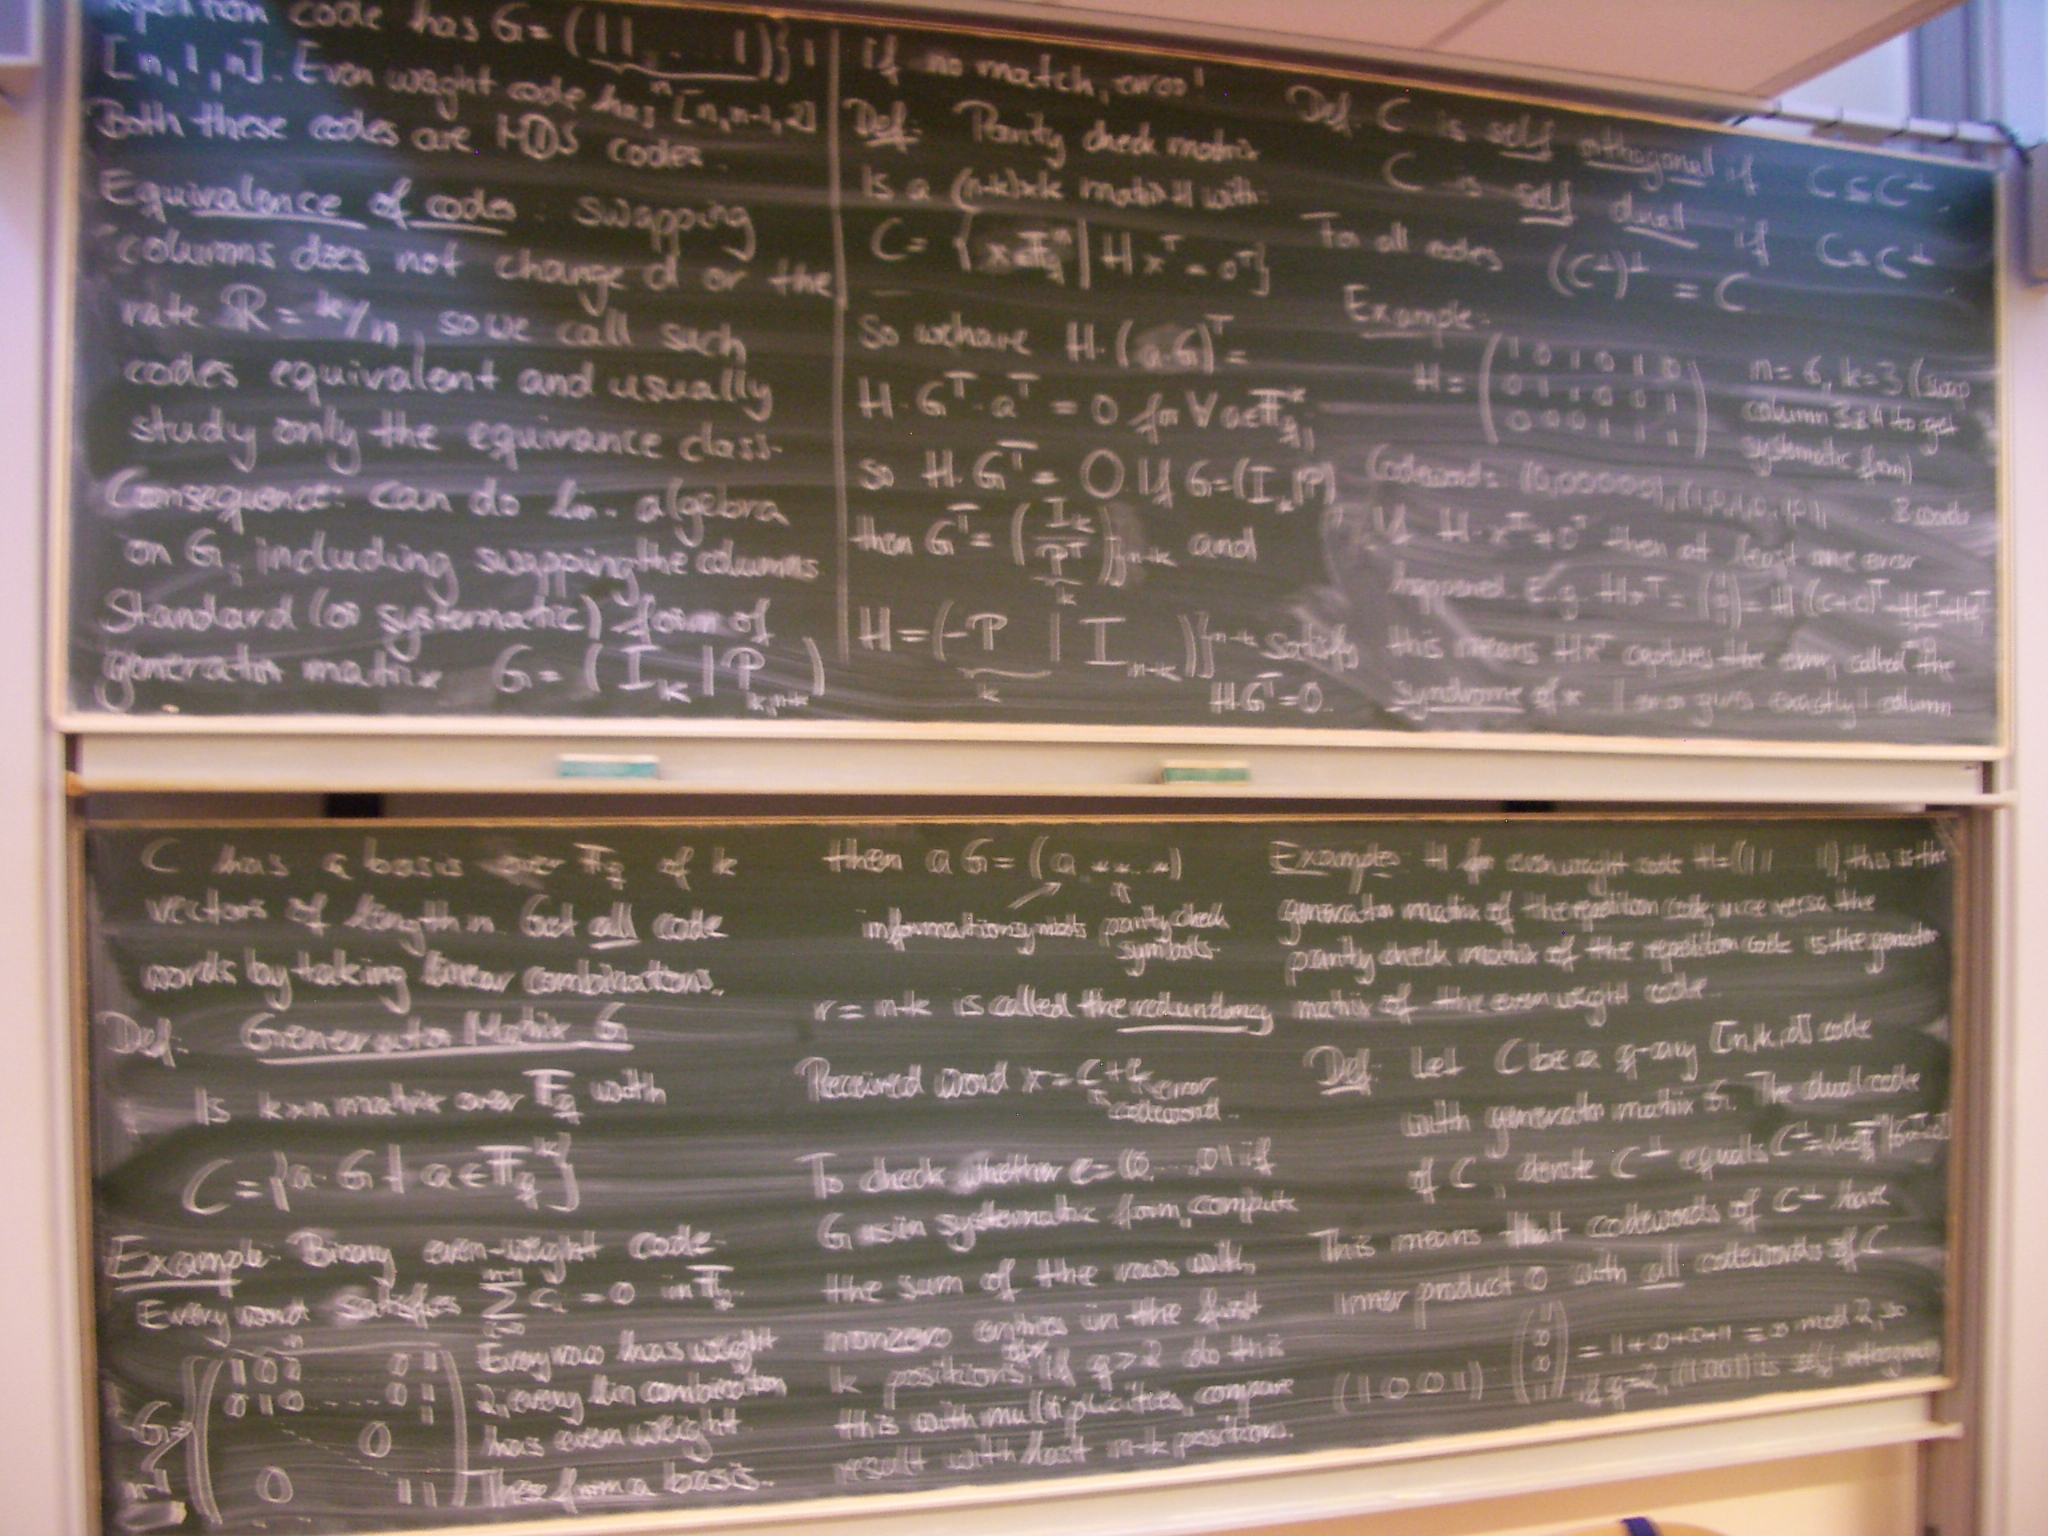 repetition code has G = (11 ... 1)}1
n
[n,1,n]. Even weight code has [n,n-1,2]
Both these codes are MDS codes.
Equivalence of codes: swapping
columns does not change d or the
rate R = k/n, so we call such
codes equivalent and usually
study only the equivance class.
Consequence: can do lin. algebra
on G, including swapping the columns
Standard (or systematic) form of
generator matrix G = ( I_k | P_{k,n-k} )
if no match, error!
Def: Parity check matrix
is a (n-k)×k matrix H with
C = { x∈F_q^n | H x^T = 0^T }
So we have H·(a·G)^T =
H·G^T·a^T = 0 for ∀ a∈F_q^k,
so H·G^T = 0 If G=(I_k|P)
then G^T = (I_k / P^T)}n-k and
k
H = (-P | I_{n-k})}n-k satisfy
k
H·G^T=0.
Def: C is self orthogonal if C ⊆ C^⊥.
C is self dual if C = C^⊥.
For all codes (C^⊥)^⊥ = C
Example:
1 0 1 0 1 0
H = 0 1 1 0 0 1
0 0 0 1 1 1
n = 6, k = 3 (swap
column 3 & 4 to get
systematic form)
Codewords: (0,00000), (1,0,1,0,1,0), 8 words
If H·x^T ≠ 0^T then at least one error
happened E.g. Hx^T = = H (c+e)^T = Hc^T + He^T
this means Hx^T captures the error, called the
syndrome of x 1 error gives exactly 1 column
C has a basis over F_q of k
vectors of length n. Get all code
words by taking linear combinations.
Def: Generator Matrix G
is k×n matrix over F_q with
C = {a·G | a∈F_q^k}
Example: Binary even-weight code
Every word satisfies Σ c_i = 0 in F_2.
n
1 1 0 0 0 1
0 1 0 .... 0 1
G =
0
n-1
0 1 1
Every row has weight
2, every lin combination
has even weight.
These form a basis.
then a G = (a *** ... *)
information symbols parity check
symbols.
r = n-k is called the redundancy
Received word x = c + e error
codeword.
To check whether e = (0,...,0) if
G is in systematic form, compute
the sum of the rows with
nonzero entries in the first
k positions, if q>2 do this
this with multiplicities, compare
result with last n-k positions.
Example: H for even weight code H = (11 11), this is the
generator matrix of the repetition code, vice versa the
parity check matrix of the repetition code is the generator
matrix of the even weight code.
Def: Let C be a q-ary [n,k,d] code
with generator matrix G. The dual code
of C, denote C^⊥ equals C^⊥ =
This means that codewords of C^⊥ have
inner product 0 with all codewords of C
(1 1 0 0 1 1) = 1·1+0+0+1·1 = 0 mod 2, so
if q=2, (11001) is self orthogonal